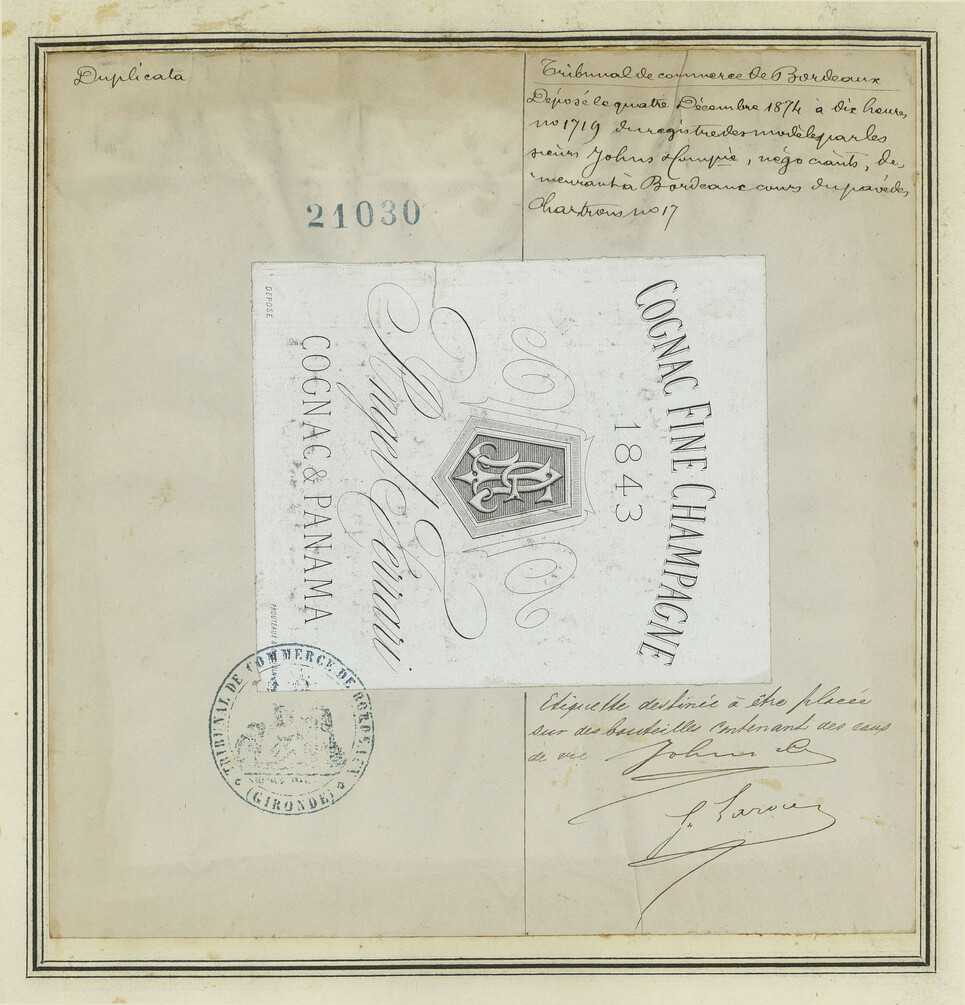 Duplicata
Tribunal de commerce de Bordeaux
Déposé le quatre Décembre 1874 à dix heures
no 1719 du registre des modèles par les
sieurs Johns & Compie, négociants, de
meurant à Bordeaux cours du pavé des
Chartrons no 17
21030
COGNAC FINE CHAMPAGNE
1843
Angel Ferrari
COGNAC & PANAMA
DEPOSE
Etiquette destinée à être placée
sur des bouteilles contenant des eaux
de vie
Johns
TRIBUNAL DE COMMERCE DE BORDEAUX
(GIRONDE)